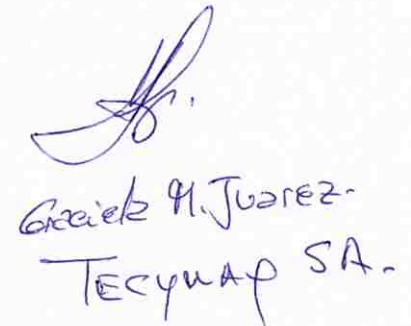 Graciela M. Juarez.
TECYMAQ SA.